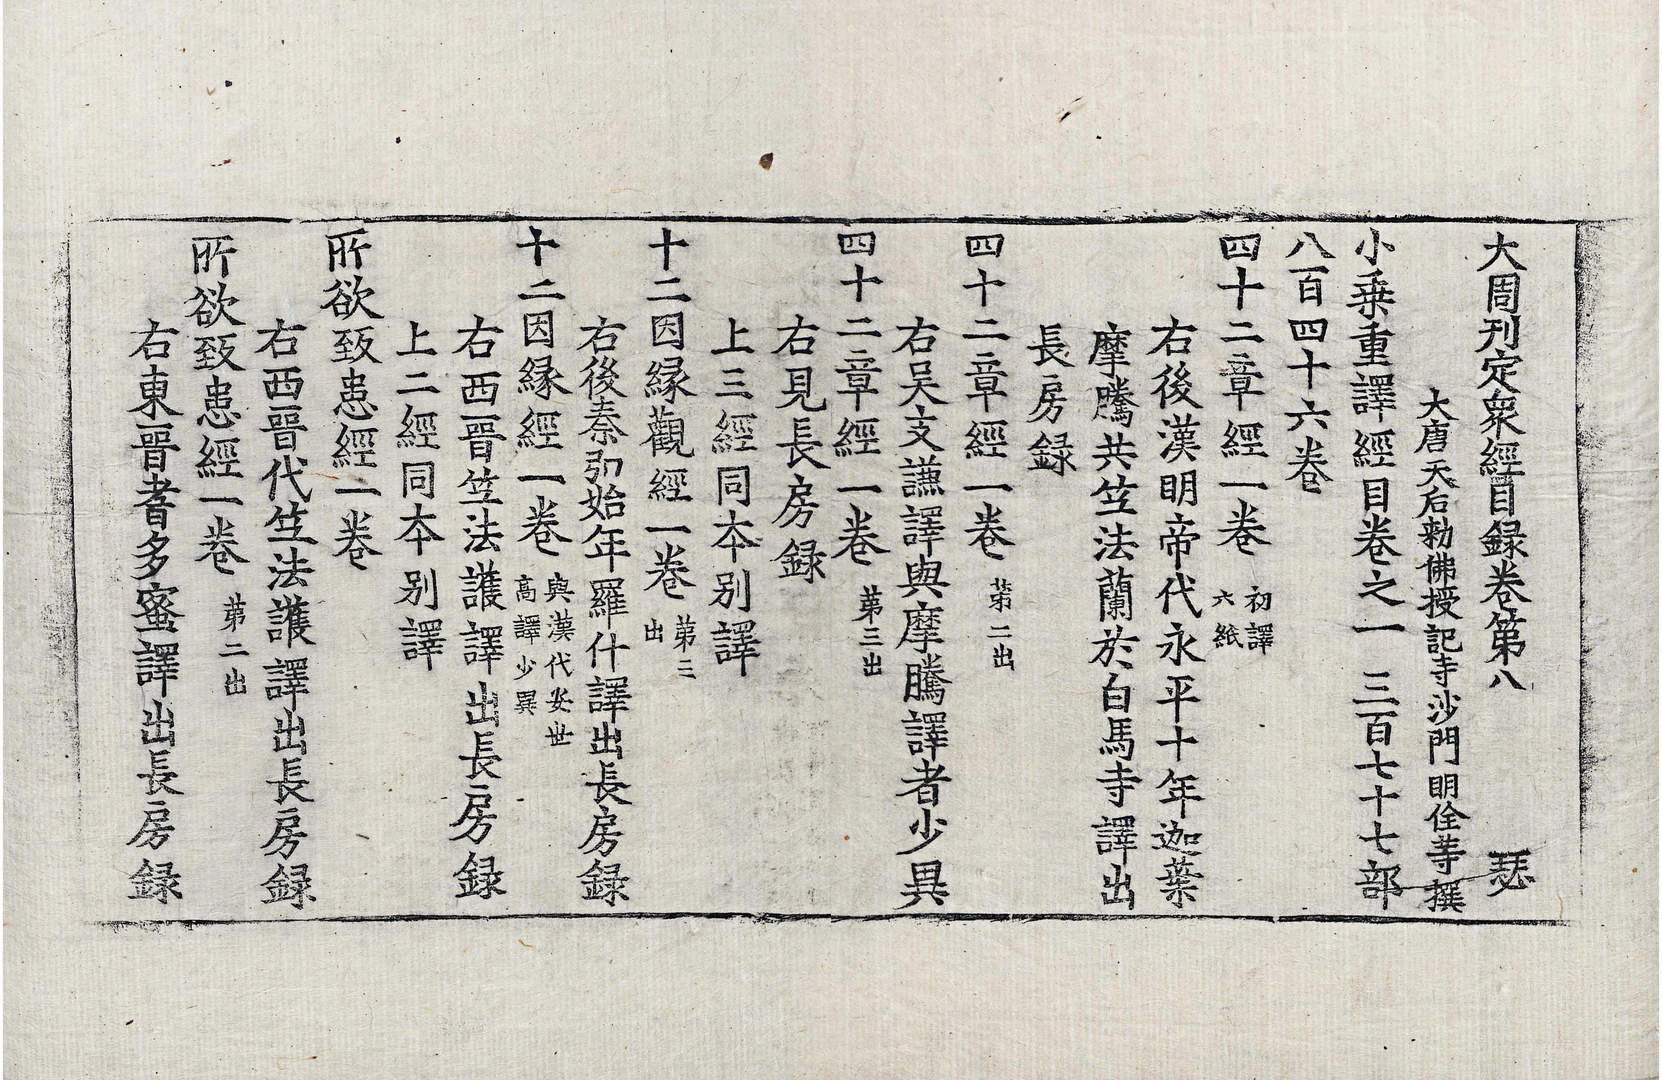 大周刊定衆經目録卷第八　瑟
大唐天后勑佛授記寺沙門明佺䓁撰
小乗重譯經目卷之一　三百七十七部
八百四十六卷
四十二章經一卷 初譯 六紙
右後漢明帝代永平十年迦葉
摩騰共竺法蘭於白馬寺譯出
長房録
四十二章經一卷 苐二出
右吴支謙譯與摩騰譯者少異
四十二章經一卷 苐三出
右見長房録
上三經同夲别譯
十二因縁觀經一卷 苐三 出
右後秦弘始年羅什譯出長房録
十二因縁經一卷 與漢代安世 高譯少異
右西晉竺法護譯出長房録
上二經同夲别譯
所欲致患經一卷
右西晉代竺法護譯出長房録
所欲致患經一卷 苐二出
右東晉耆多蜜譯出長房録